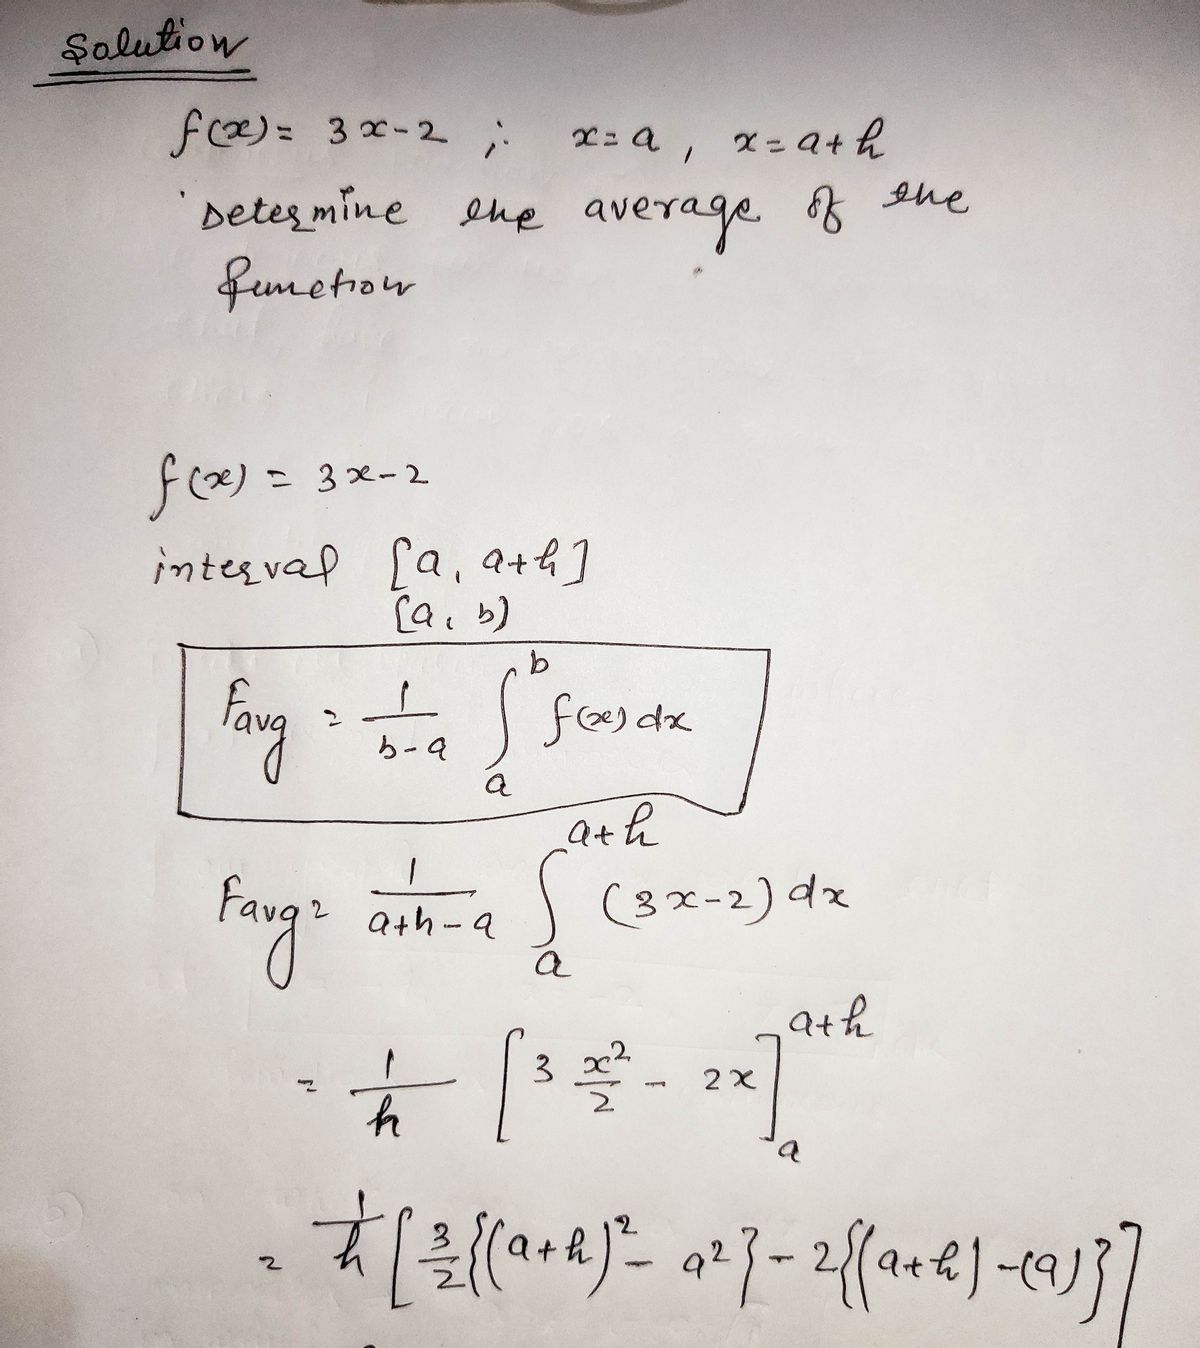 Solution
f(x) = 3x-2 ; x=a, x=a+h
Determine the average of the
function
f(x) = 3x-2
interval [a, a+h]
[a, b)
Favg = 1/(b-a) ∫_a^b f(x) dx
Favg = 1/(a+h-a) ∫_a^(a+h) (3x-2) dx
= 1/h [3 x²/2 - 2x]_a^(a+h)
= 1/h [3/2{(a+h)² - a²} - 2{(a+h) - (a)}]